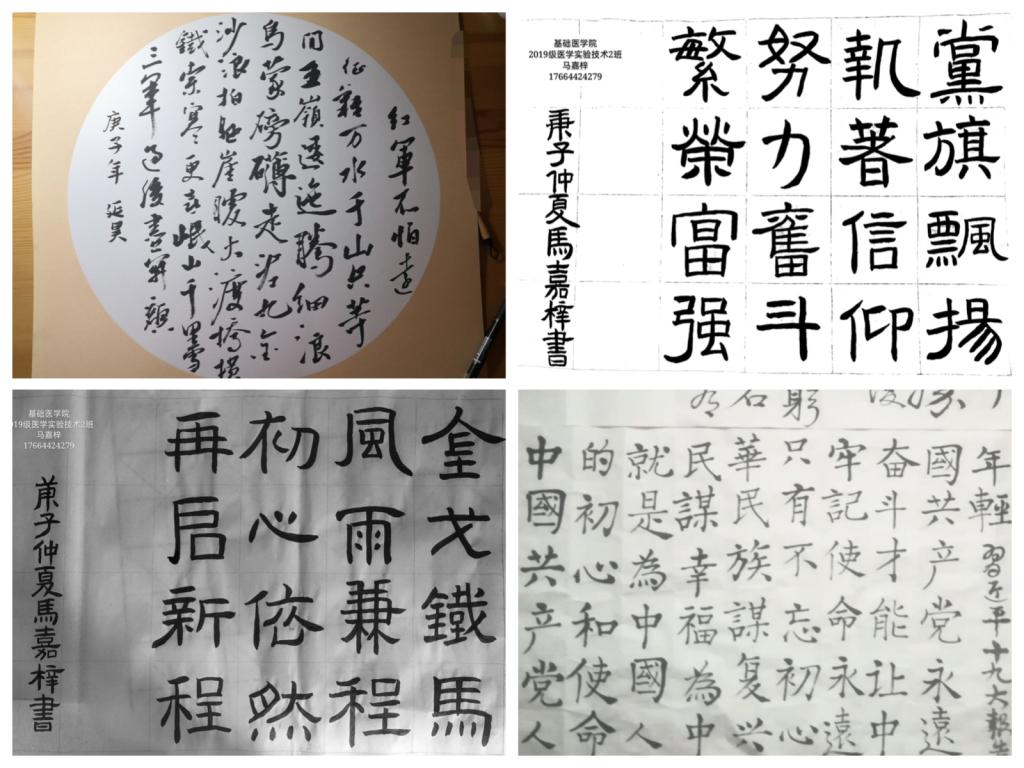 红軍不怕遠
征難万水千山只等
闲五嶺逶迤騰細浪
烏蒙磅礴走泥丸金
沙浪拍雲崖暖大渡橋横
鐵索寒更喜岷山千里雪
三軍過後盡開顏
庚子年 延昊
基础医学院
2019级医学实验技术2班
马嘉梓
17664424279
黨旗飄揚
執著信仰
努力奮斗
繁榮富强
庚子仲夏馬嘉梓書
基础医学院
019级医学实验技术2班
马嘉梓
17664424279
金戈鐵馬
風雨兼程
初心依然
再启新程
庚子仲夏馬嘉梓書
中國共产党人
的初心和使命
就是為中國人
民謀幸福為中
華民族謀复兴
只有不忘初心
牢記使命永遠
奋斗才能让中
國共产党永遠
年輕 習近平十九大報告